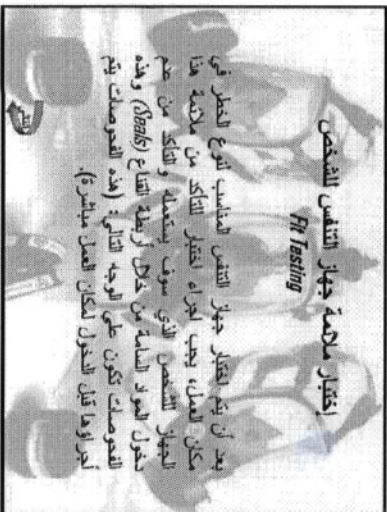 إختبار ملائمة جهاز التنفس للشخص
Fit Testing
بعد أن يتم اختيار جهاز التنفس المناسب لنوع الخطر في
مكان العمل، يجب اجراء اختبار للتأكد من ملائمة هذا
الجهاز للشخص الذي سوف يستعمله و التأكد من عدم
دخول المواد السامة من خلال أربطة القناع (Seals) وهذه
الفحوصات تكون على الوجه التالي: (هذه الفحوصات يتم
أجراؤها قبل الدخول لمكان العمل مباشرة).